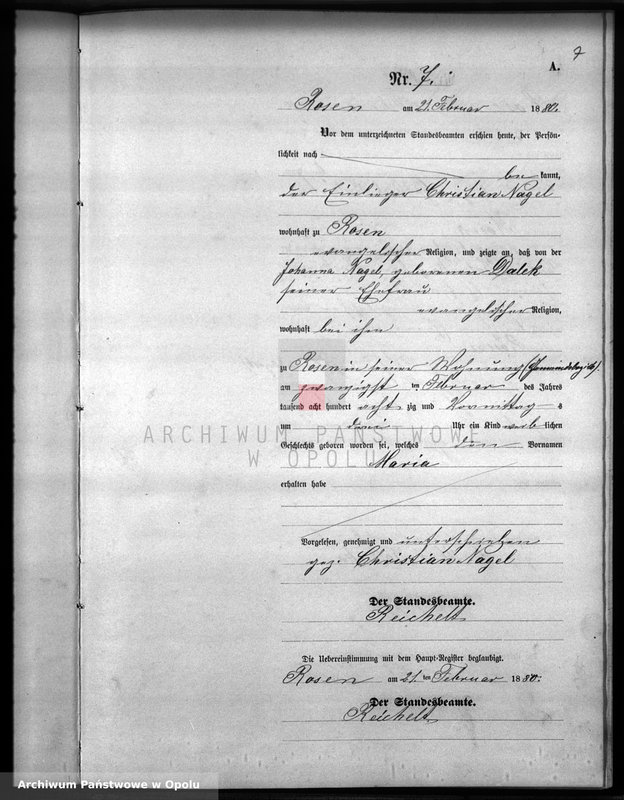 7
A.
Nr. 7.
Rosen am 21. Februar 1880.
Vor dem unterzeichneten Standesbeamten erschien heute, der Persön-
lichkeit nach
be kannt,
der Einlieger Christian Nagel
wohnhaft zu Rosen
evangelischer Religion, und zeigte an, daß von der
Johanna Nagel, geborenen Dalek
seiner Ehefrau
evangelischer Religion,
wohnhaft bei ihm
zu Rosen in seiner Wohnung
am zwanzigst ten Februar des Jahres
tausend acht hundert acht zig und Vormittag s
um drei Uhr ein Kind weib lichen
Geschlechts geboren worden sei, welches den Vornamen
Maria
erhalten habe
ARCHIWUM PAŃSTWOWE
W OPOLU
Vorgelesen, genehmigt und unterschrieben
gez. Christian Nagel
Der Standesbeamte.
Reichelt
Die Uebereinstimmung mit dem Haupt-Register beglaubigt.
Rosen am 21. ten Februar 1880.
Der Standesbeamte.
Reichelt
Archiwum Państwowe w Opolu